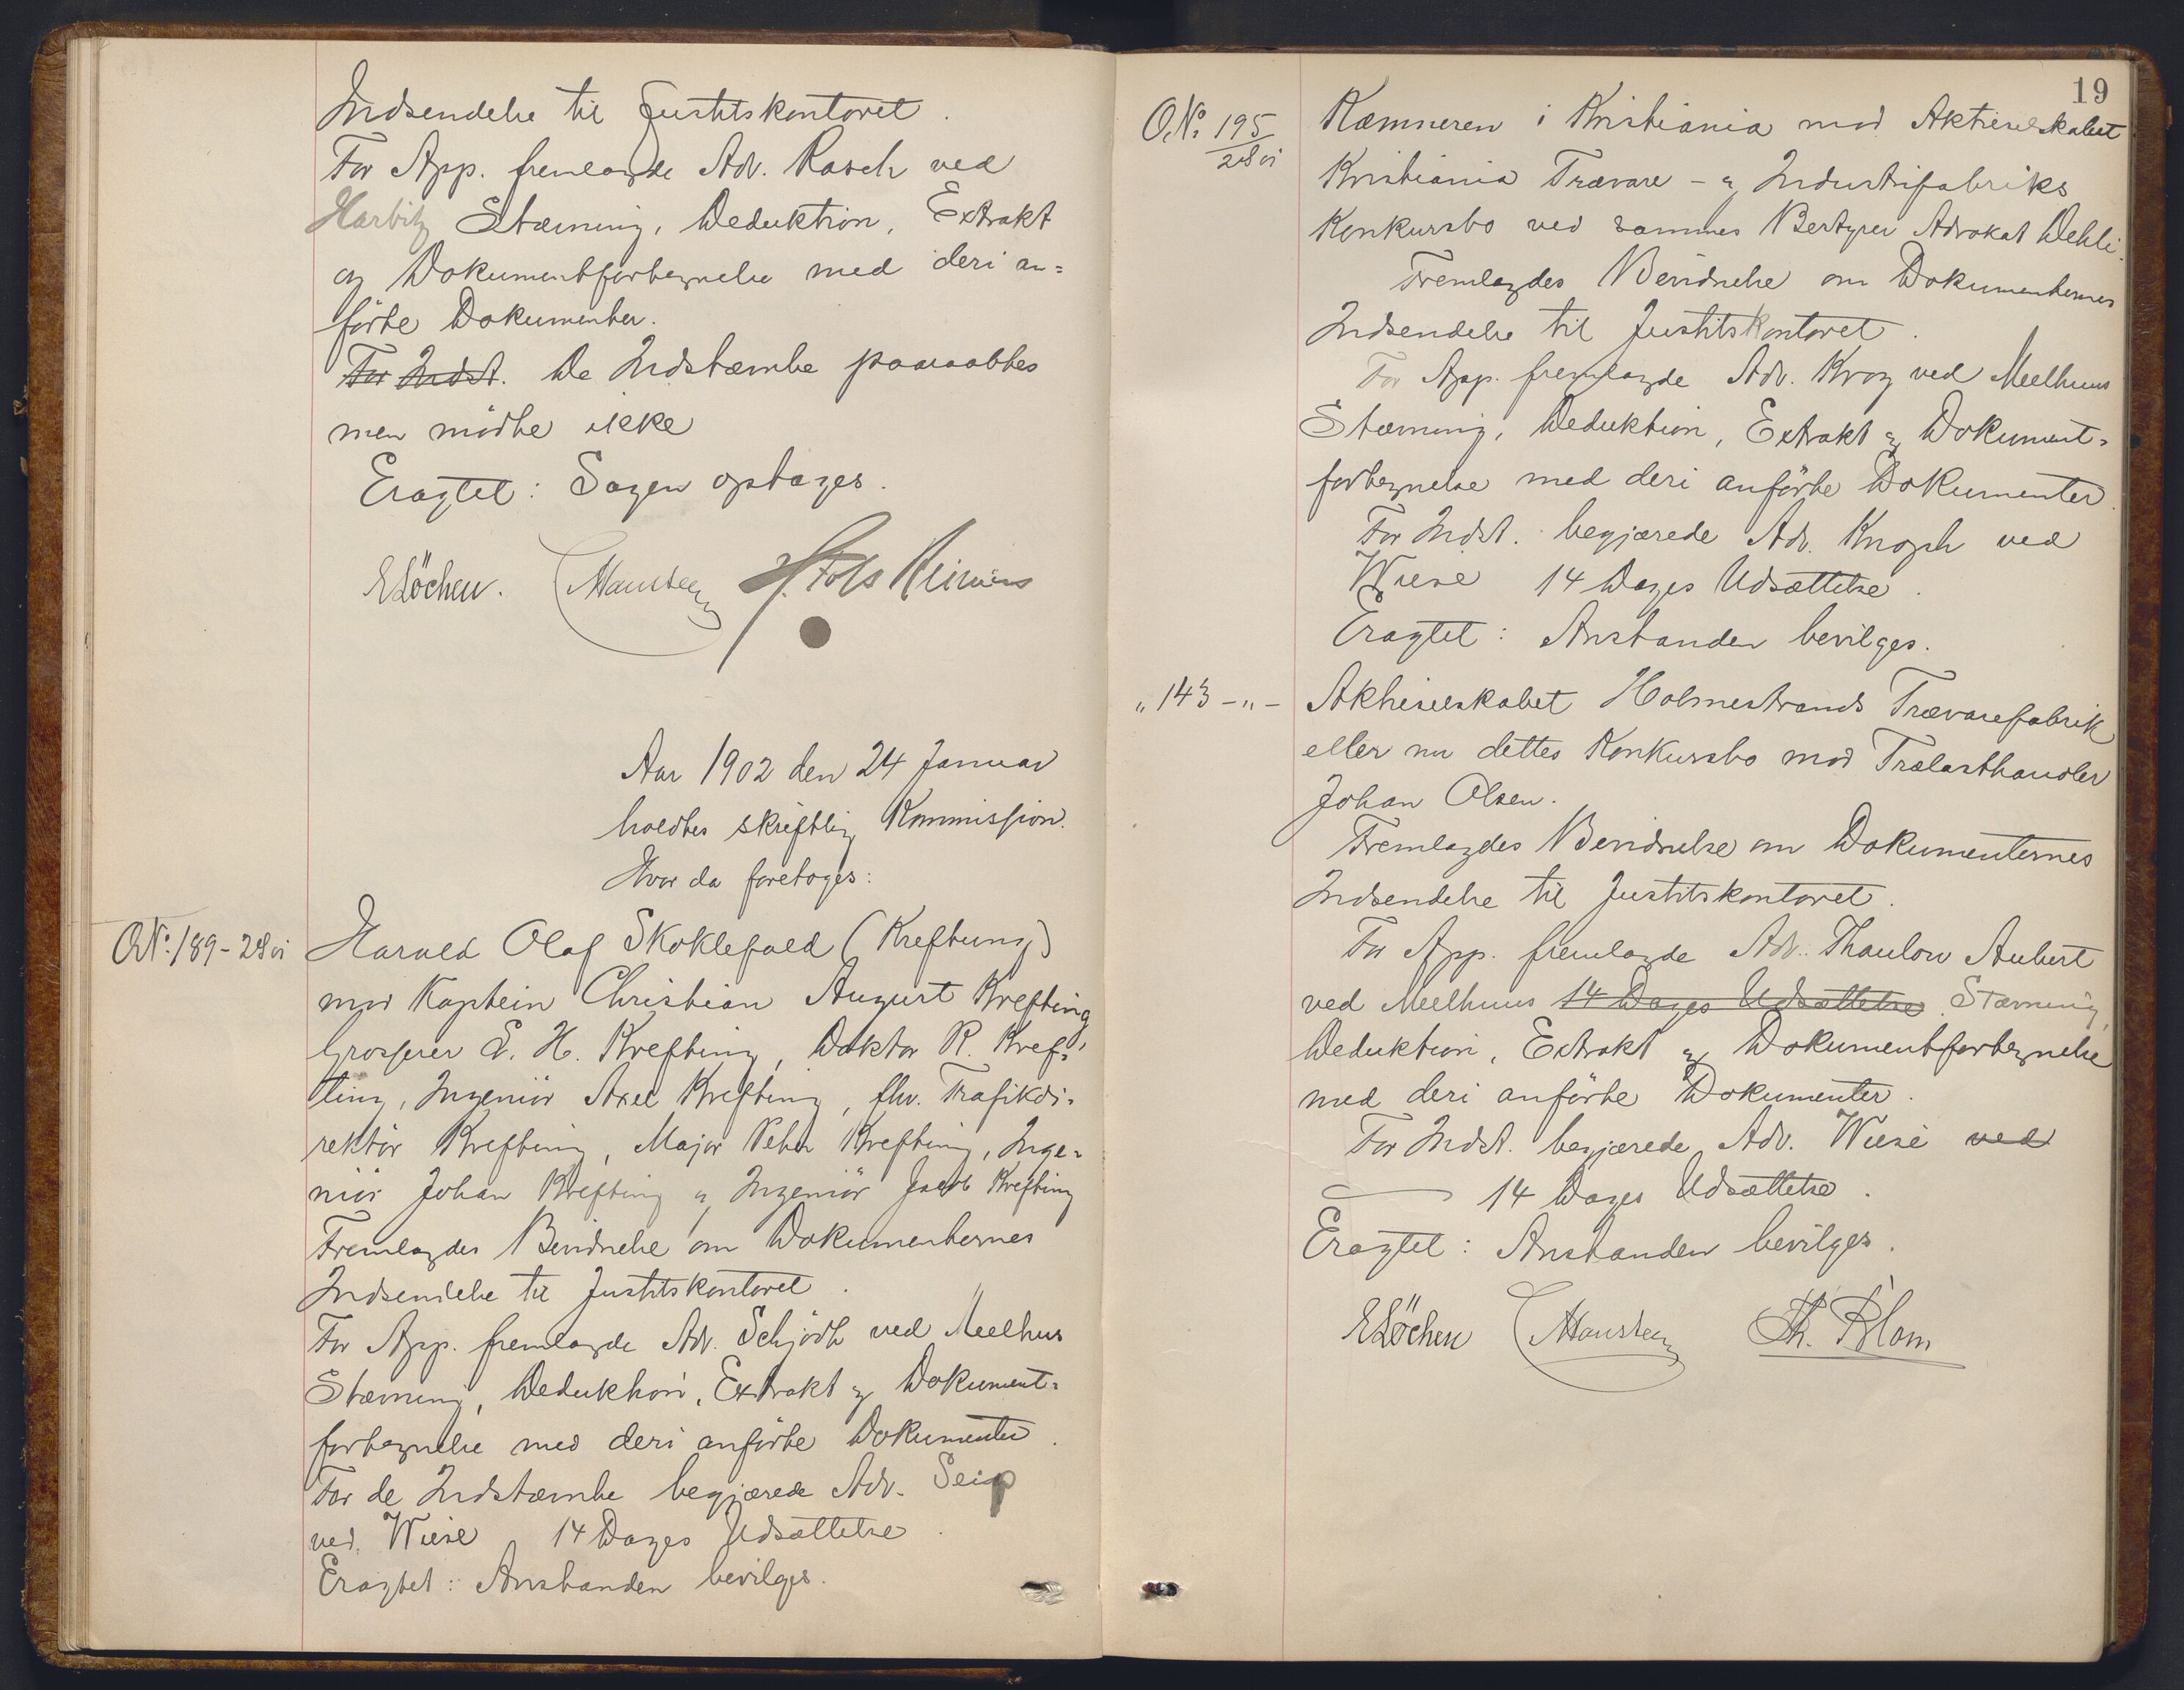 Indsendelse til Justitskontoret.
For App. fremlagde Adv. Rasch ved
Harbitz Stævning, Deduktion, Extrakt
og Dokumentfortegnelse med deri an=
førte Dokumenter.
For Indst. De Indstævnte paaraabtes
men mødte ikke
Eragtet: Sagen optages.
E Löchen.
Aar 1902 den 24 Januar
holdtes skriftlig Kommission.
Hvor da foretoges:
O.No: 189 - 2den
Harald Olaf Skoklefald (Krefting)
mod Kaptein Christian August Krefting
Grosserer E. H. Krefting, Doktor R. Kref=
ting, Ingeniör Axel Krefting, fhv. Trafikdi=
rektör Krefting, Major Peter Krefting, Inge=
niör Johan Krefting og Ingeniör Jacob Krefting
Fremlagdes Bevidnelse om Dokumenternes
Indsendelse til Justitskontoret.
For App. fremlagde Adv. Schjödt ved Meelhus
Stævning, Deduktion, Extrakt og Dokument=
fortegnelse med deri anförte Dokumenter.
For de Indstævnte begjærede Adv. Seip
ved Wiese 14 Dages Udsættelse.
Eragtet: Anstanden bevilges.
19
O.No. 195
Kæmneren i Kristiania mod Aktieselskabet
Kristiania Trævare- og Industrifabriks
Konkursbo ved sammes Bestyrer Advokat Dehli.
Fremlagdes Bevidnelse om Dokumenternes
Indsendelse til Justitskontoret.
For App. fremlagde Adv. Krog ved Meelhuus
Stævning, Deduktion, Extrakt og Dokument=
fortegnelse med deri anförte Dokumenter.
For Indst. begjærede Adv. Knoph ved
Wiese 14 Dages Udsættelse.
Eragtet: Anstanden bevilges.
" 143 - " -
Aktieselskabet Holmestrands Trævarefabrik
eller nu dettes Konkursbo mod Trælasthandler
Johan Olsen.
Fremlagdes Bevidnelse om Dokumenternes
Indsendelse til Justitskontoret.
For App. fremlagde Adv. Thaulow Aubert
ved Meelhuus 14 Dages Udsættelse Stævning,
Deduktion, Extrakt og Dokumentfortegnelse
med deri anförte Dokumenter.
For Indst. begjærede Adv. Wiese ved
14 Dages Udsættelse.
Eragtet: Anstanden bevilges.
E Löchen Th. Blom